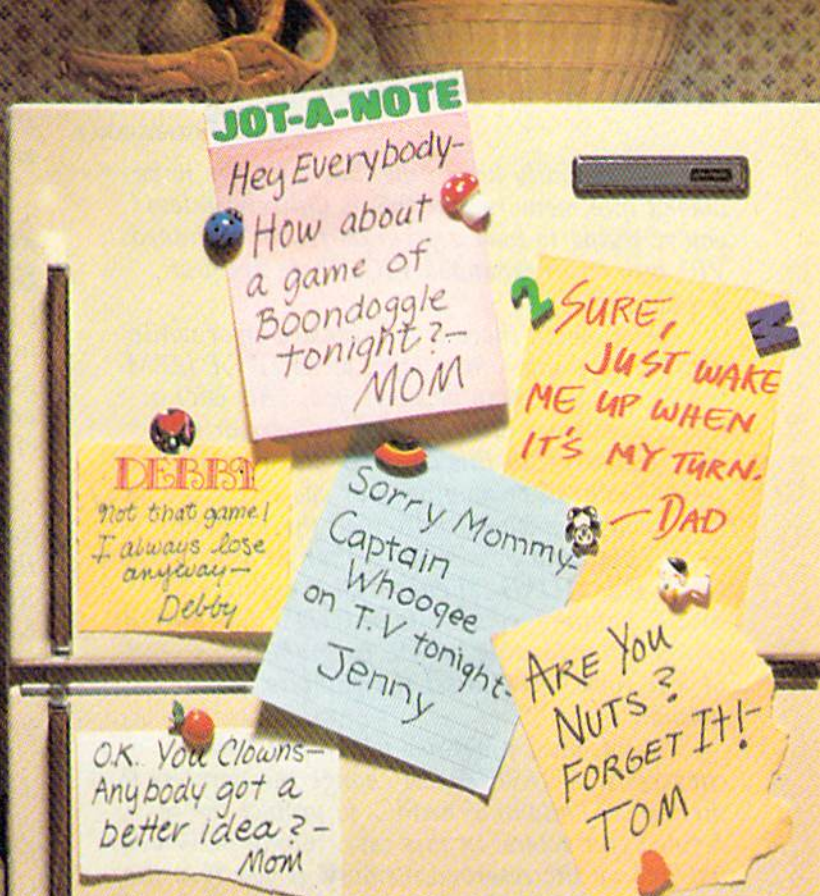 JOT-A-NOTE
Hey Everybody-
How about
a game of
Boondoggle
tonight?-
MOM
SURE,
JUST WAKE
ME UP WHEN
IT'S MY TURN.
- DAD
DEBBY
Not that game!
I always lose
anyway-
Debby
Sorry Mommy-
Captain
Whoogee
on T.V tonight-
Jenny
ARE YOU
NUTS?
FORGET IT!-
TOM
O.K. You Clowns-
Anybody got a
better idea?-
Mom
2
M